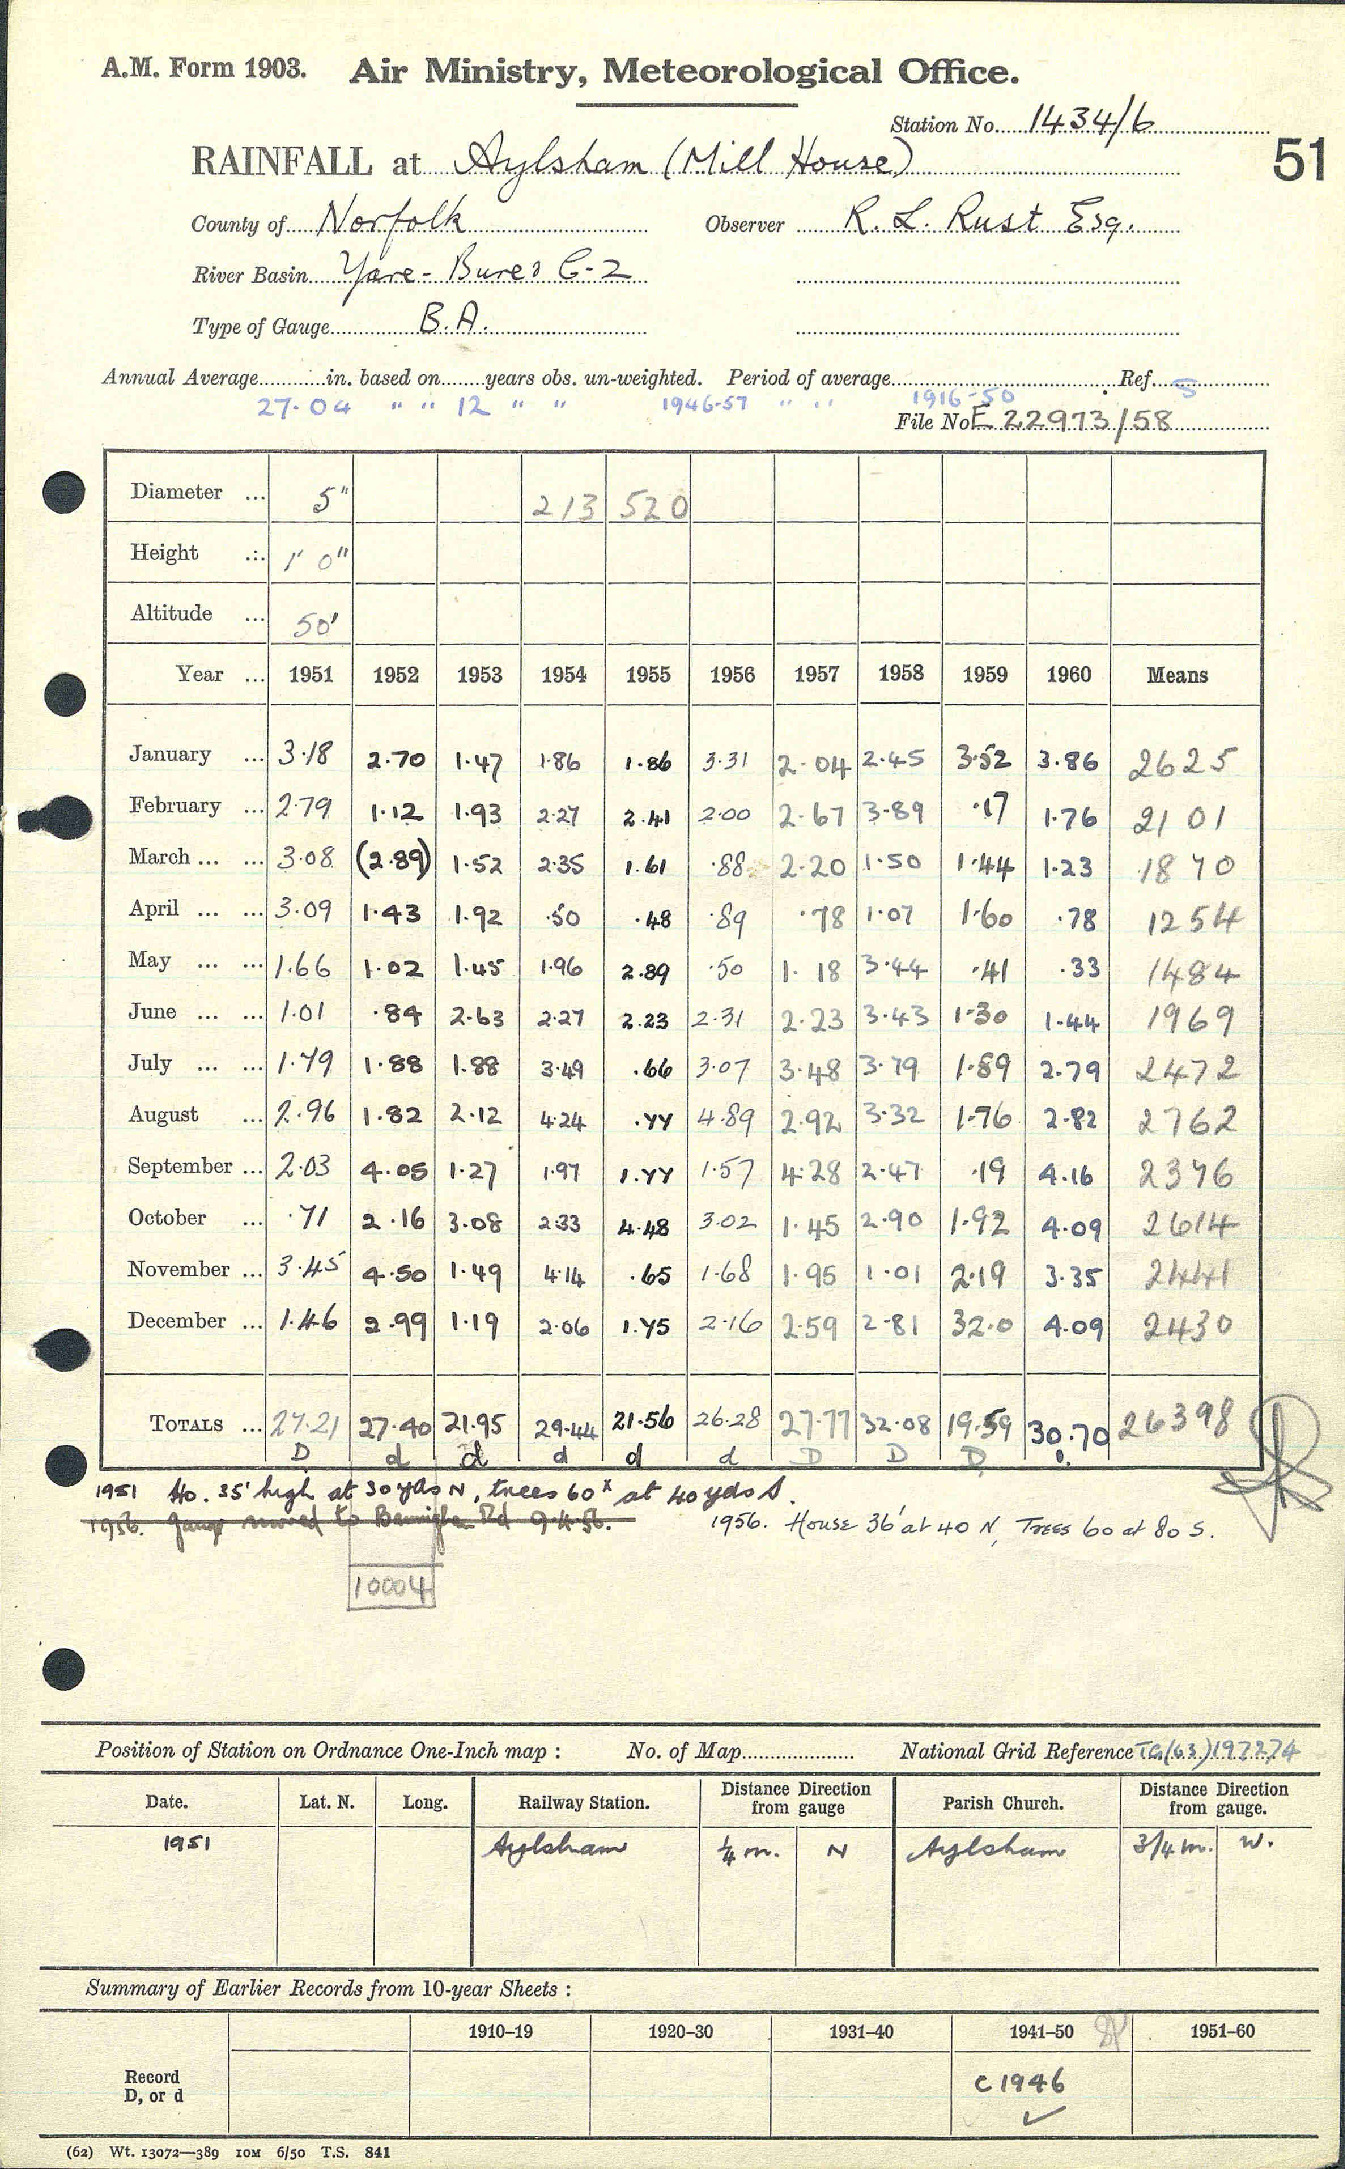 A.M. Form 1903. Air Ministry, Meteorological Office.
Station No. 1434/6
51
RAINFALL at Aylsham (Mill House)
County of Norfolk Observer R. L. Rust Esq.
River Basin Yare - Bure
Type of Gauge B.A.
Annual Average in. based on years obs. un-weighted. Period of average Ref. S
27.04 " " 12 " " 1946-57 " " 1916-50
File No E 22973/58
Diameter ... 5" 213 520
Height ... 1' 0"
Altitude ... 50'
Year ... 1951 1952 1953 1954 1955 1956 1957 1958 1959 1960 Means
January ... 3.18 2.70 1.47 1.86 1.86 3.31 2.04 2.45 3.52 3.86 2625
February ... 2.79 1.12 1.93 2.27 2.41 2.00 2.67 3.89 .17 1.76 2101
March ... ... 3.08 (2.89) 1.52 2.35 1.61 .88 2.20 1.50 1.44 1.23 1870
April ... ... 3.09 1.43 1.92 .50 .48 .89 .78 1.07 1.60 .78 1254
May ... ... 1.66 1.02 1.45 1.96 2.89 .50 1.18 3.44 .41 .33 1484
June ... ... 1.01 .84 2.63 2.27 2.23 2.31 2.23 3.43 1.30 1.44 1969
July ... ... 1.79 1.88 1.88 3.49 .66 3.07 3.48 3.79 1.89 2.79 2472
August ... 2.96 1.82 2.12 4.24 .77 4.89 2.92 3.32 1.76 2.82 2762
September ... 2.03 4.05 1.27 1.97 1.77 1.57 4.28 2.47 .19 4.16 2376
October ... .71 2.16 3.08 2.33 4.48 3.02 1.45 2.90 1.92 4.09 2614
November ... 3.45 4.50 1.49 4.14 .65 1.68 1.95 1.01 2.19 3.35 2441
December ... 1.46 2.99 1.19 2.06 1.75 2.16 2.59 2.81 32.0 4.09 2430
TOTALS ... 27.21 27.40 21.95 29.44 21.56 26.28 27.77 32.08 19.59 30.70 26398
D d d d d d D D D
1951 Ho. 35' high at 30 yds N, trees 60' at 40 yds S.
1956. Gauge moved to Rd 9.4.56. 1956. House 36' at 40 N, Trees 60 at 80 S.
10004
Position of Station on Ordnance One-Inch map : No. of Map National Grid Reference TG(63)197274
Date. Lat. N. Long. Railway Station. Distance Direction from gauge Parish Church. Distance Direction from gauge.
1951 Aylsham 1/4 m. N Aylsham 3/4 m. W.
Summary of Earlier Records from 10-year Sheets :
1910–19 1920–30 1931–40 1941–50 1951–60
Record
D, or d
C 1946
(62) Wt. 13072—389 10M 6/50 T.S. 841